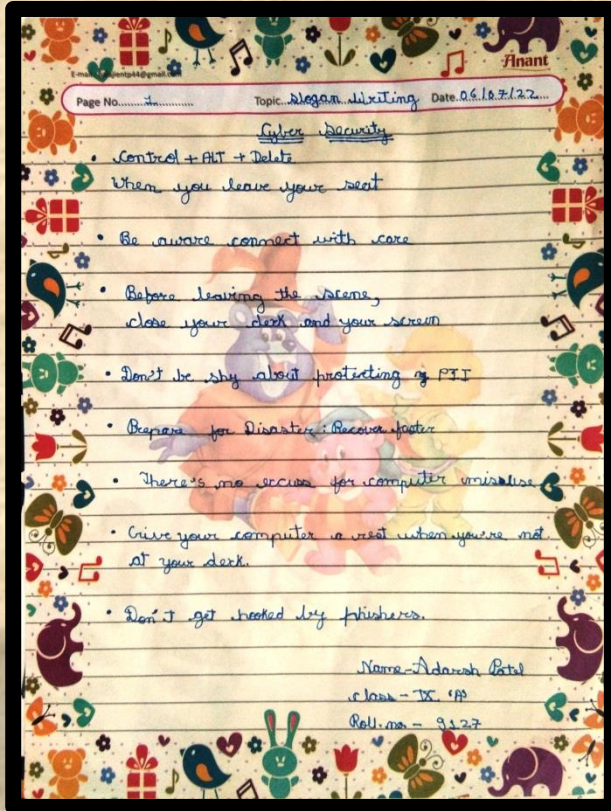 Anant
Page No. 1 Topic Slogan Writing Date 06/07/22
Cyber Security
• Control + ALT + Delete
When you leave your seat
• Be aware connect with care
• Before leaving the scene,
close your desk and your screen
• Don't be shy about protecting PII
• Prepare for Disaster : Recover faster
• There's no excuss for computer misuse
• Give your computer a rest when you're not
at your desk.
• Don't get hooked by phishers.
Name - Adarsh Patel
class - IX 'A'
Roll. no - 9127